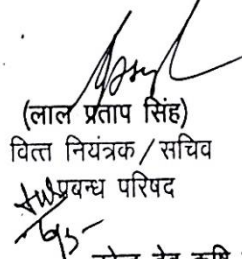 (लाल प्रताप सिंह)
वित्त नियंत्रक / सचिव
प्रबन्ध परिषद
देव कृषि